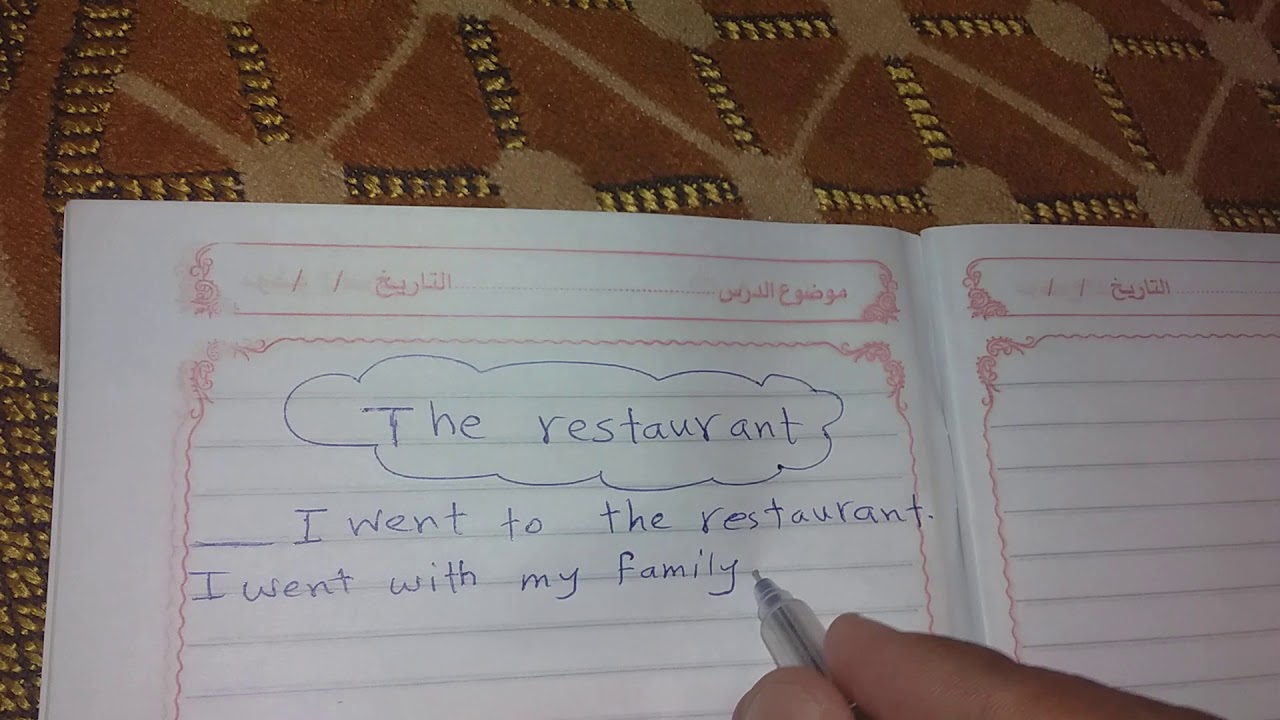 موضوع الدرس ........................ التاريخ / /
........................ التاريخ / /
The restaurant
___ I went to the restaurant.
I went with my family